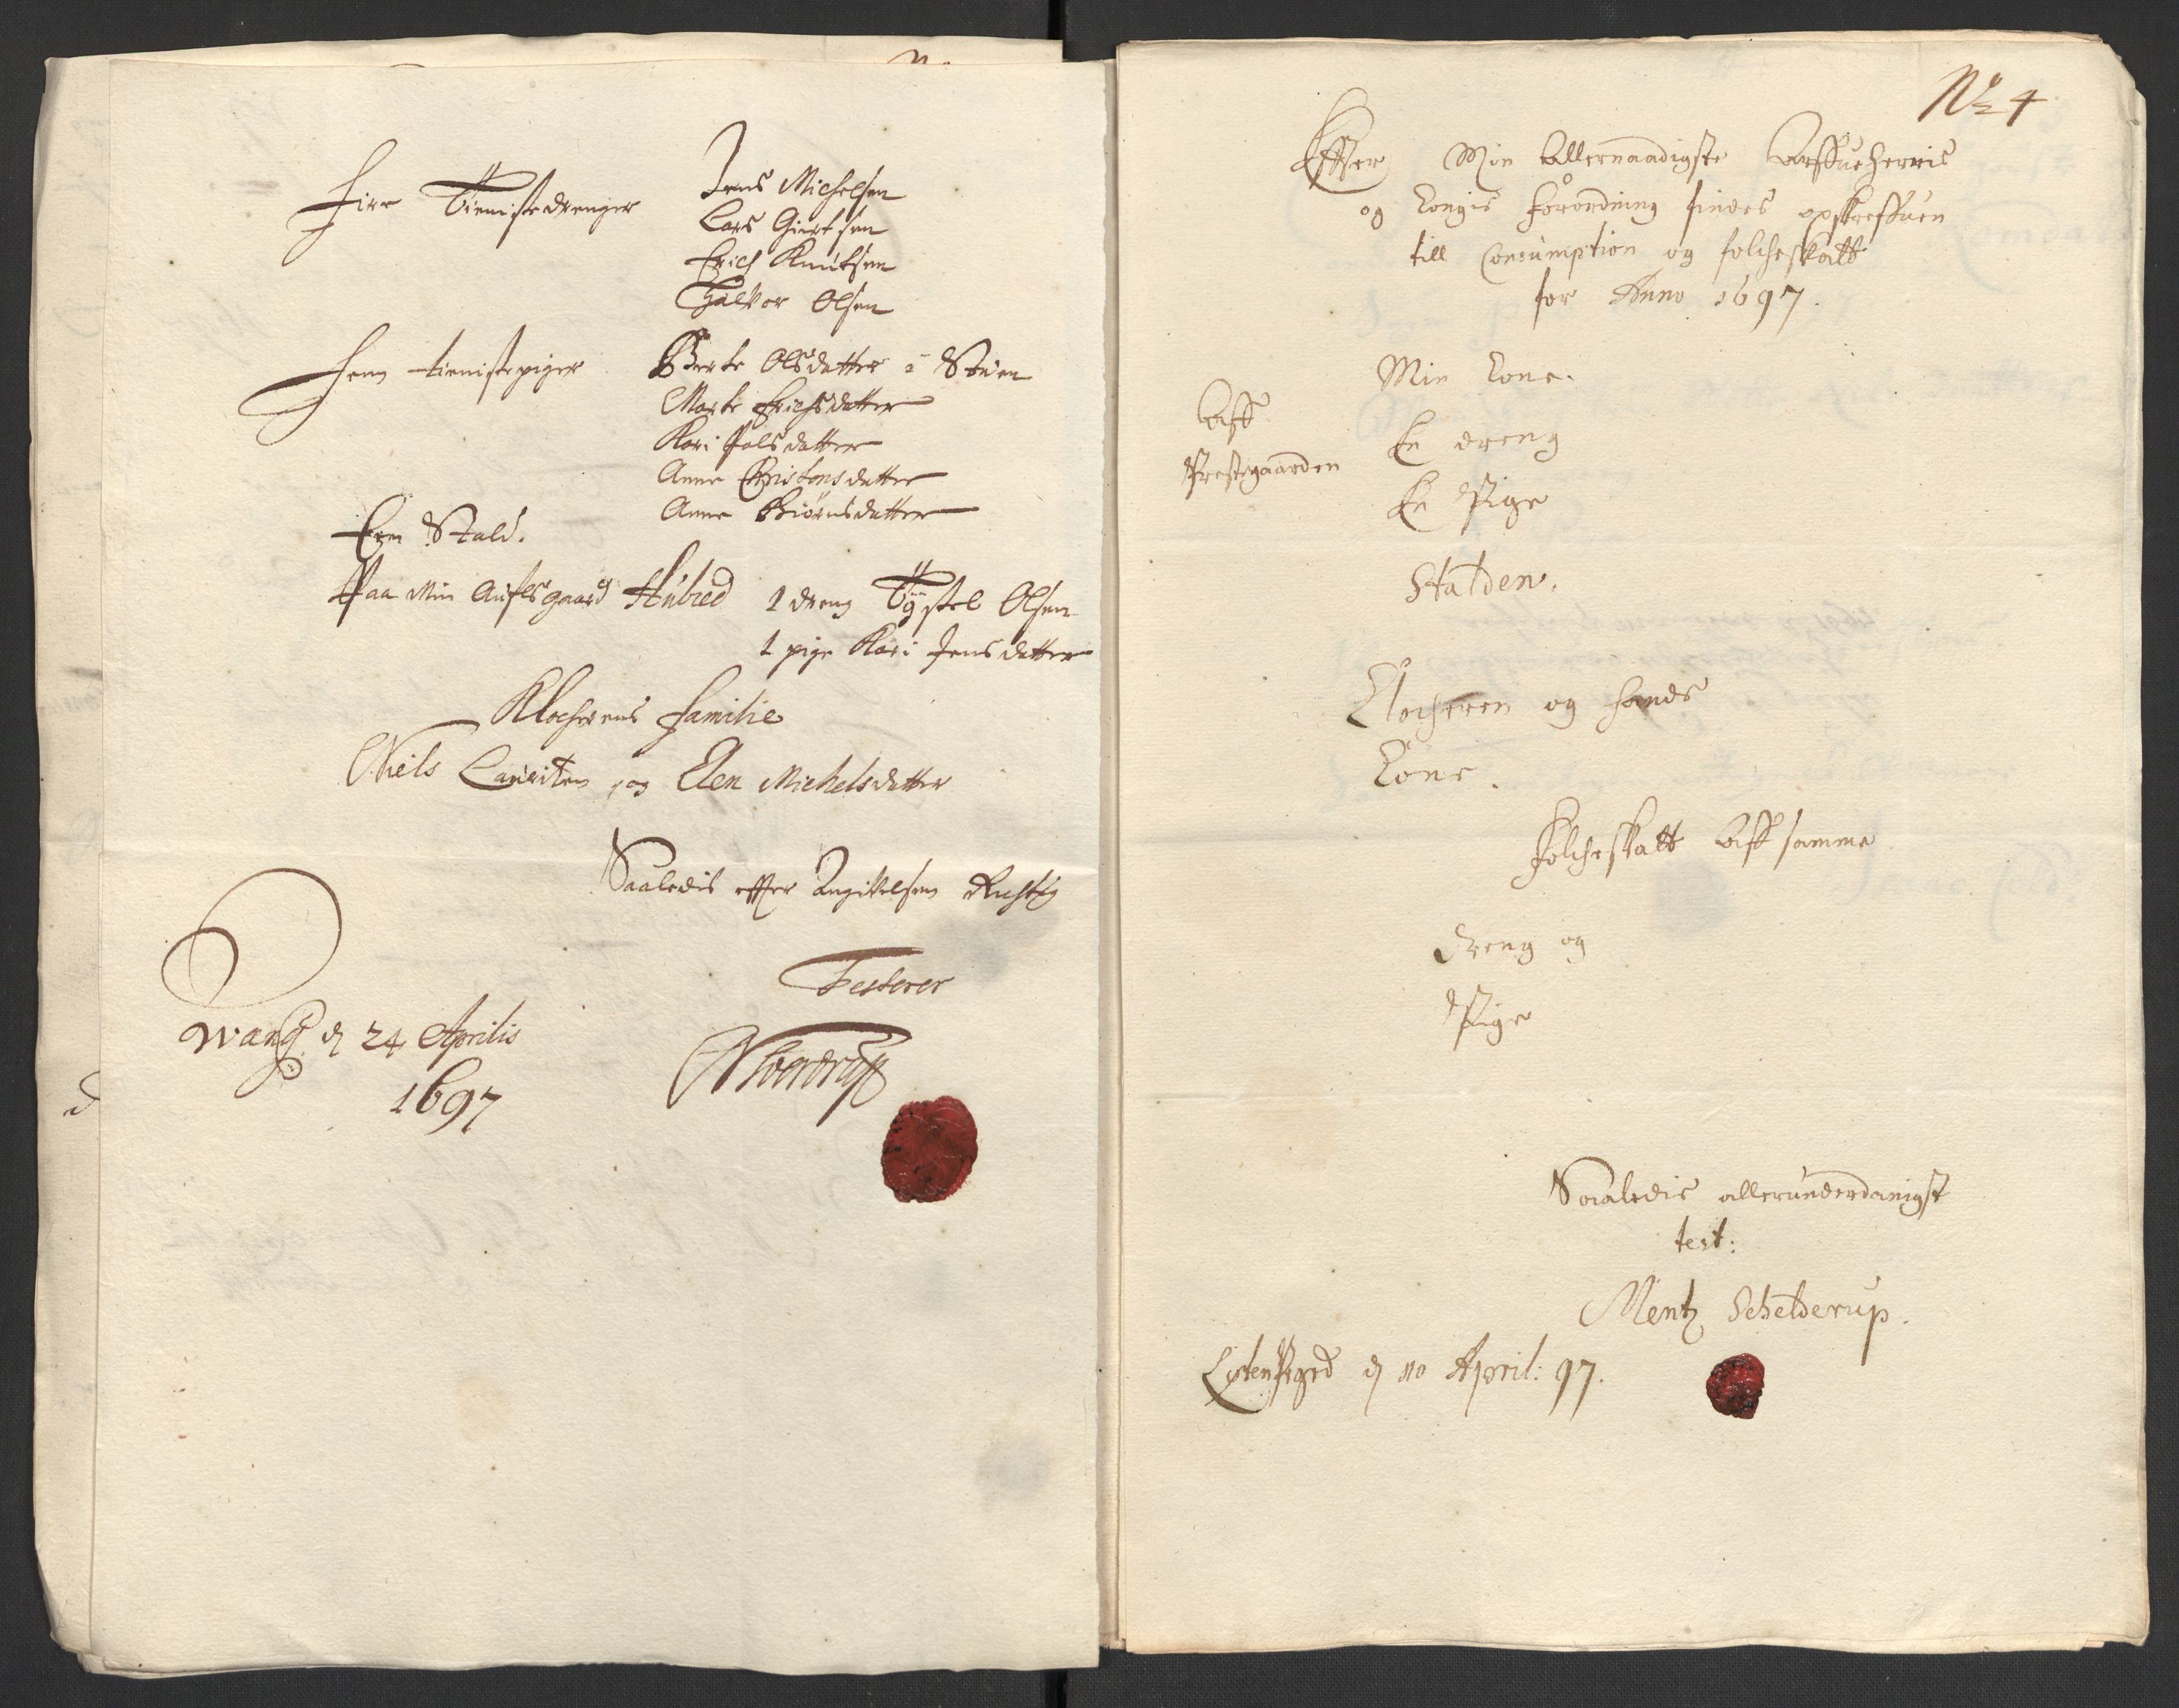 Fire Tienistedrenger
Jens Michelsen
Lars Giertsen
Erich Knutsen
Halvor Olsen
Fem tienistepiger
Berte Olsdatter i Stuen
Marte Erichsdatter
Kari Polsdatter
Anne Christensdatter
Anne Biørnsdatter
Een Stald.
Paa Min Aufls gaard Hubred 1 dreng Tystel Olsen
1 pige Kari Jensdatter
Klocherens familie
Niels Lauritzen, og Elen Michelsdatter
Saaledis effter Angivelsen Rictig
Testerer
Wang d 24 Aprilis
1697
No 4
Effter Min Allernaadigste Arffueherris
og Kongis Forordning findes opskreffuen
till Consumption og folcheskatt
for Anno 1697.
Min Kone.
Aff
Prestegaarden
En dreng
En Pige
Stalden.
Klocheren og hands
Kone.
Folcheskatt Aff samme
dreng og
Pige
Saaledis allerunderdanigst
test:
Mentz Schelderup.
d 10 April: 97.